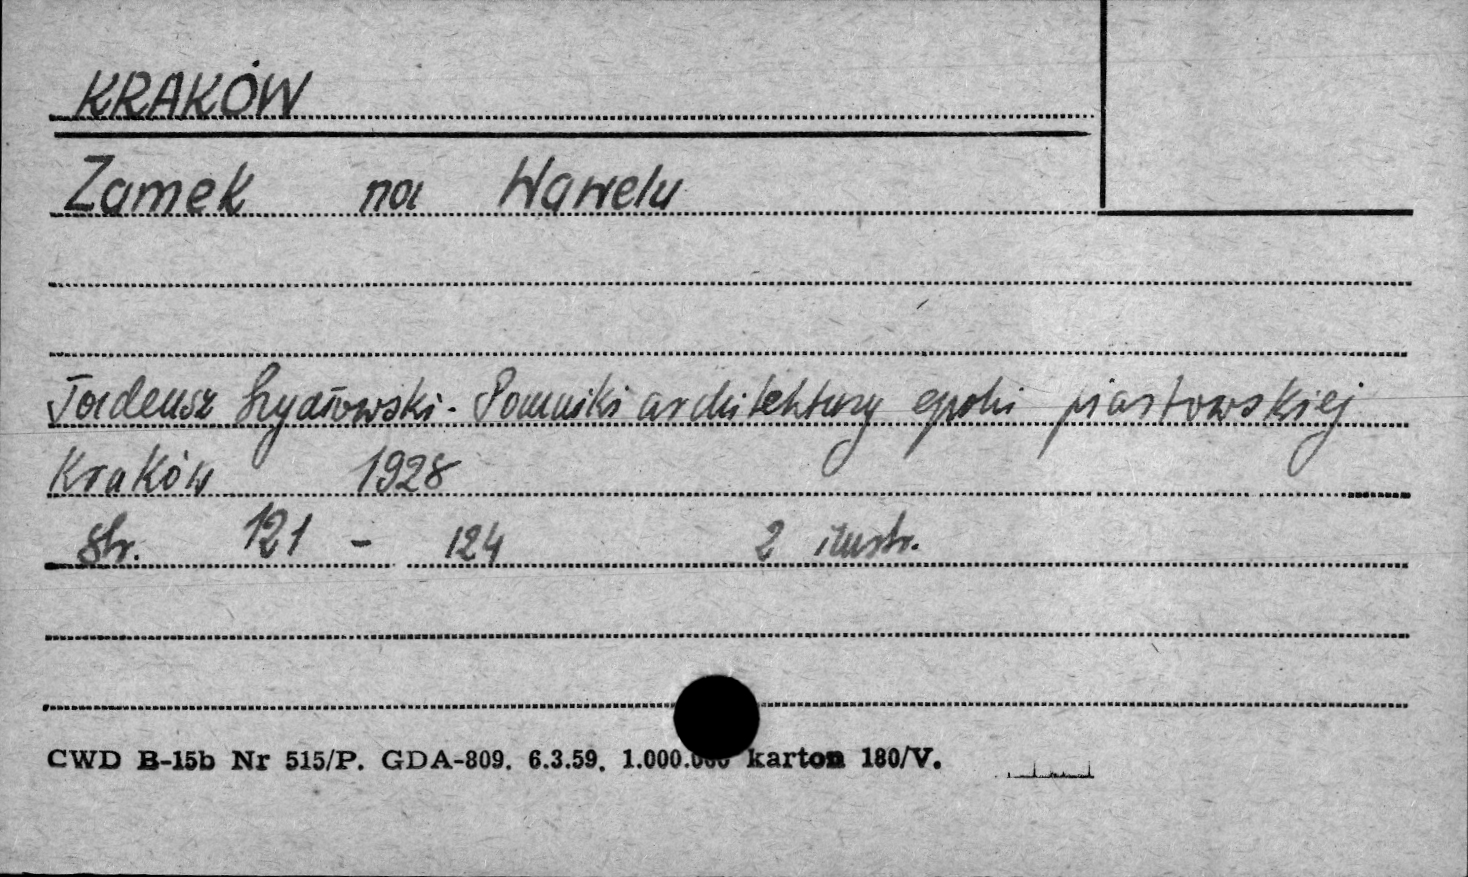 KRAKÓW
Zamek na Wawelu
Tadeusz Szydłowski - Pomniki architektury epoki piastowskiej
Kraków 1928
Str. 121 - 124 2 ilustr.
CWD B-15b Nr 515/P. GDA-809. 6.3.59. 1.000.000 karton 180/V.